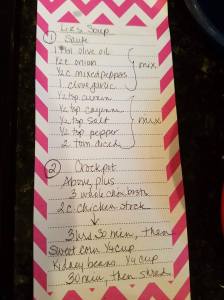 Soup
① Saute
olive oil
onion
½c mixed peppers
1 clove garlic
mix
½ tsp cumin
½ tsp cayenne
½ tsp salt
½ tsp pepper
2 tom diced
mix
② Crockpot
Above plus
3 whole chix brsts
2c. chicken stock
↓
3 hrs 30 min, then
Sweet corn ¼ cup
Kidney beans ¼ cup
30 min, then shred